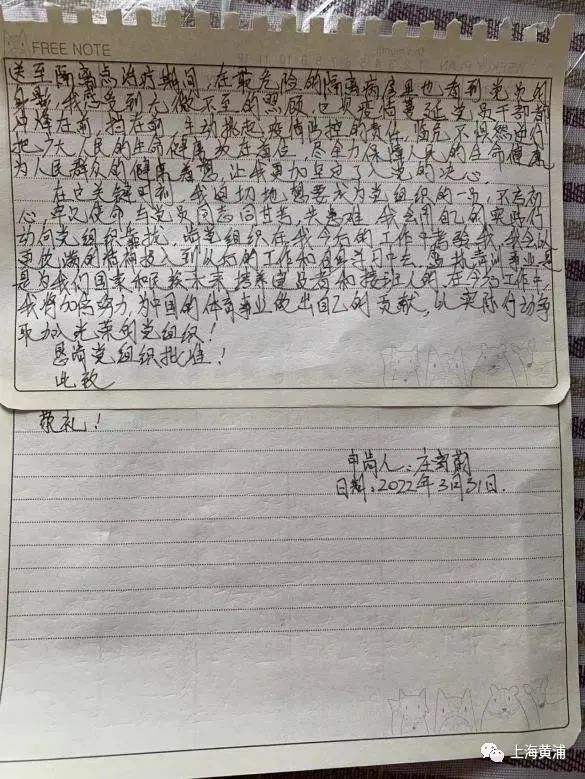 FREE NOTE
送至隔离点治疗期间,在最危险的隔离病房里也看到党员的
身影,我感受到无微不至的照顾,也见疫情蔓延党员干部都
冲锋在前,挡在前,主动挑起疫情防控的责任,临危不惧
把广大人民的生命健康放在首位,尽全力保障人民的生命健康
为人民群众的健康着想,让我更加坚定了入党的决心。
在这关键时刻,我迫切地想要成为党组织的一员,不忘初
心,牢记使命,与党员同志同甘共苦,共患难,我会用自己的实际行
动向党组织靠拢,请党组织在我今后的工作中考验我,我会以
更饱满的精神投入到以后的工作和自身学习中去。事业是
是为我们国家和民族未来,培养建设者和接班人的,在今后工作中
我将加倍努力,为中国的体育事业做出自己的贡献,以实际行动争
取加入光荣的党组织!
恳请党组织批准!
此致
敬礼!
申请人:庄
日期:2022年3月31日.
上海黄浦